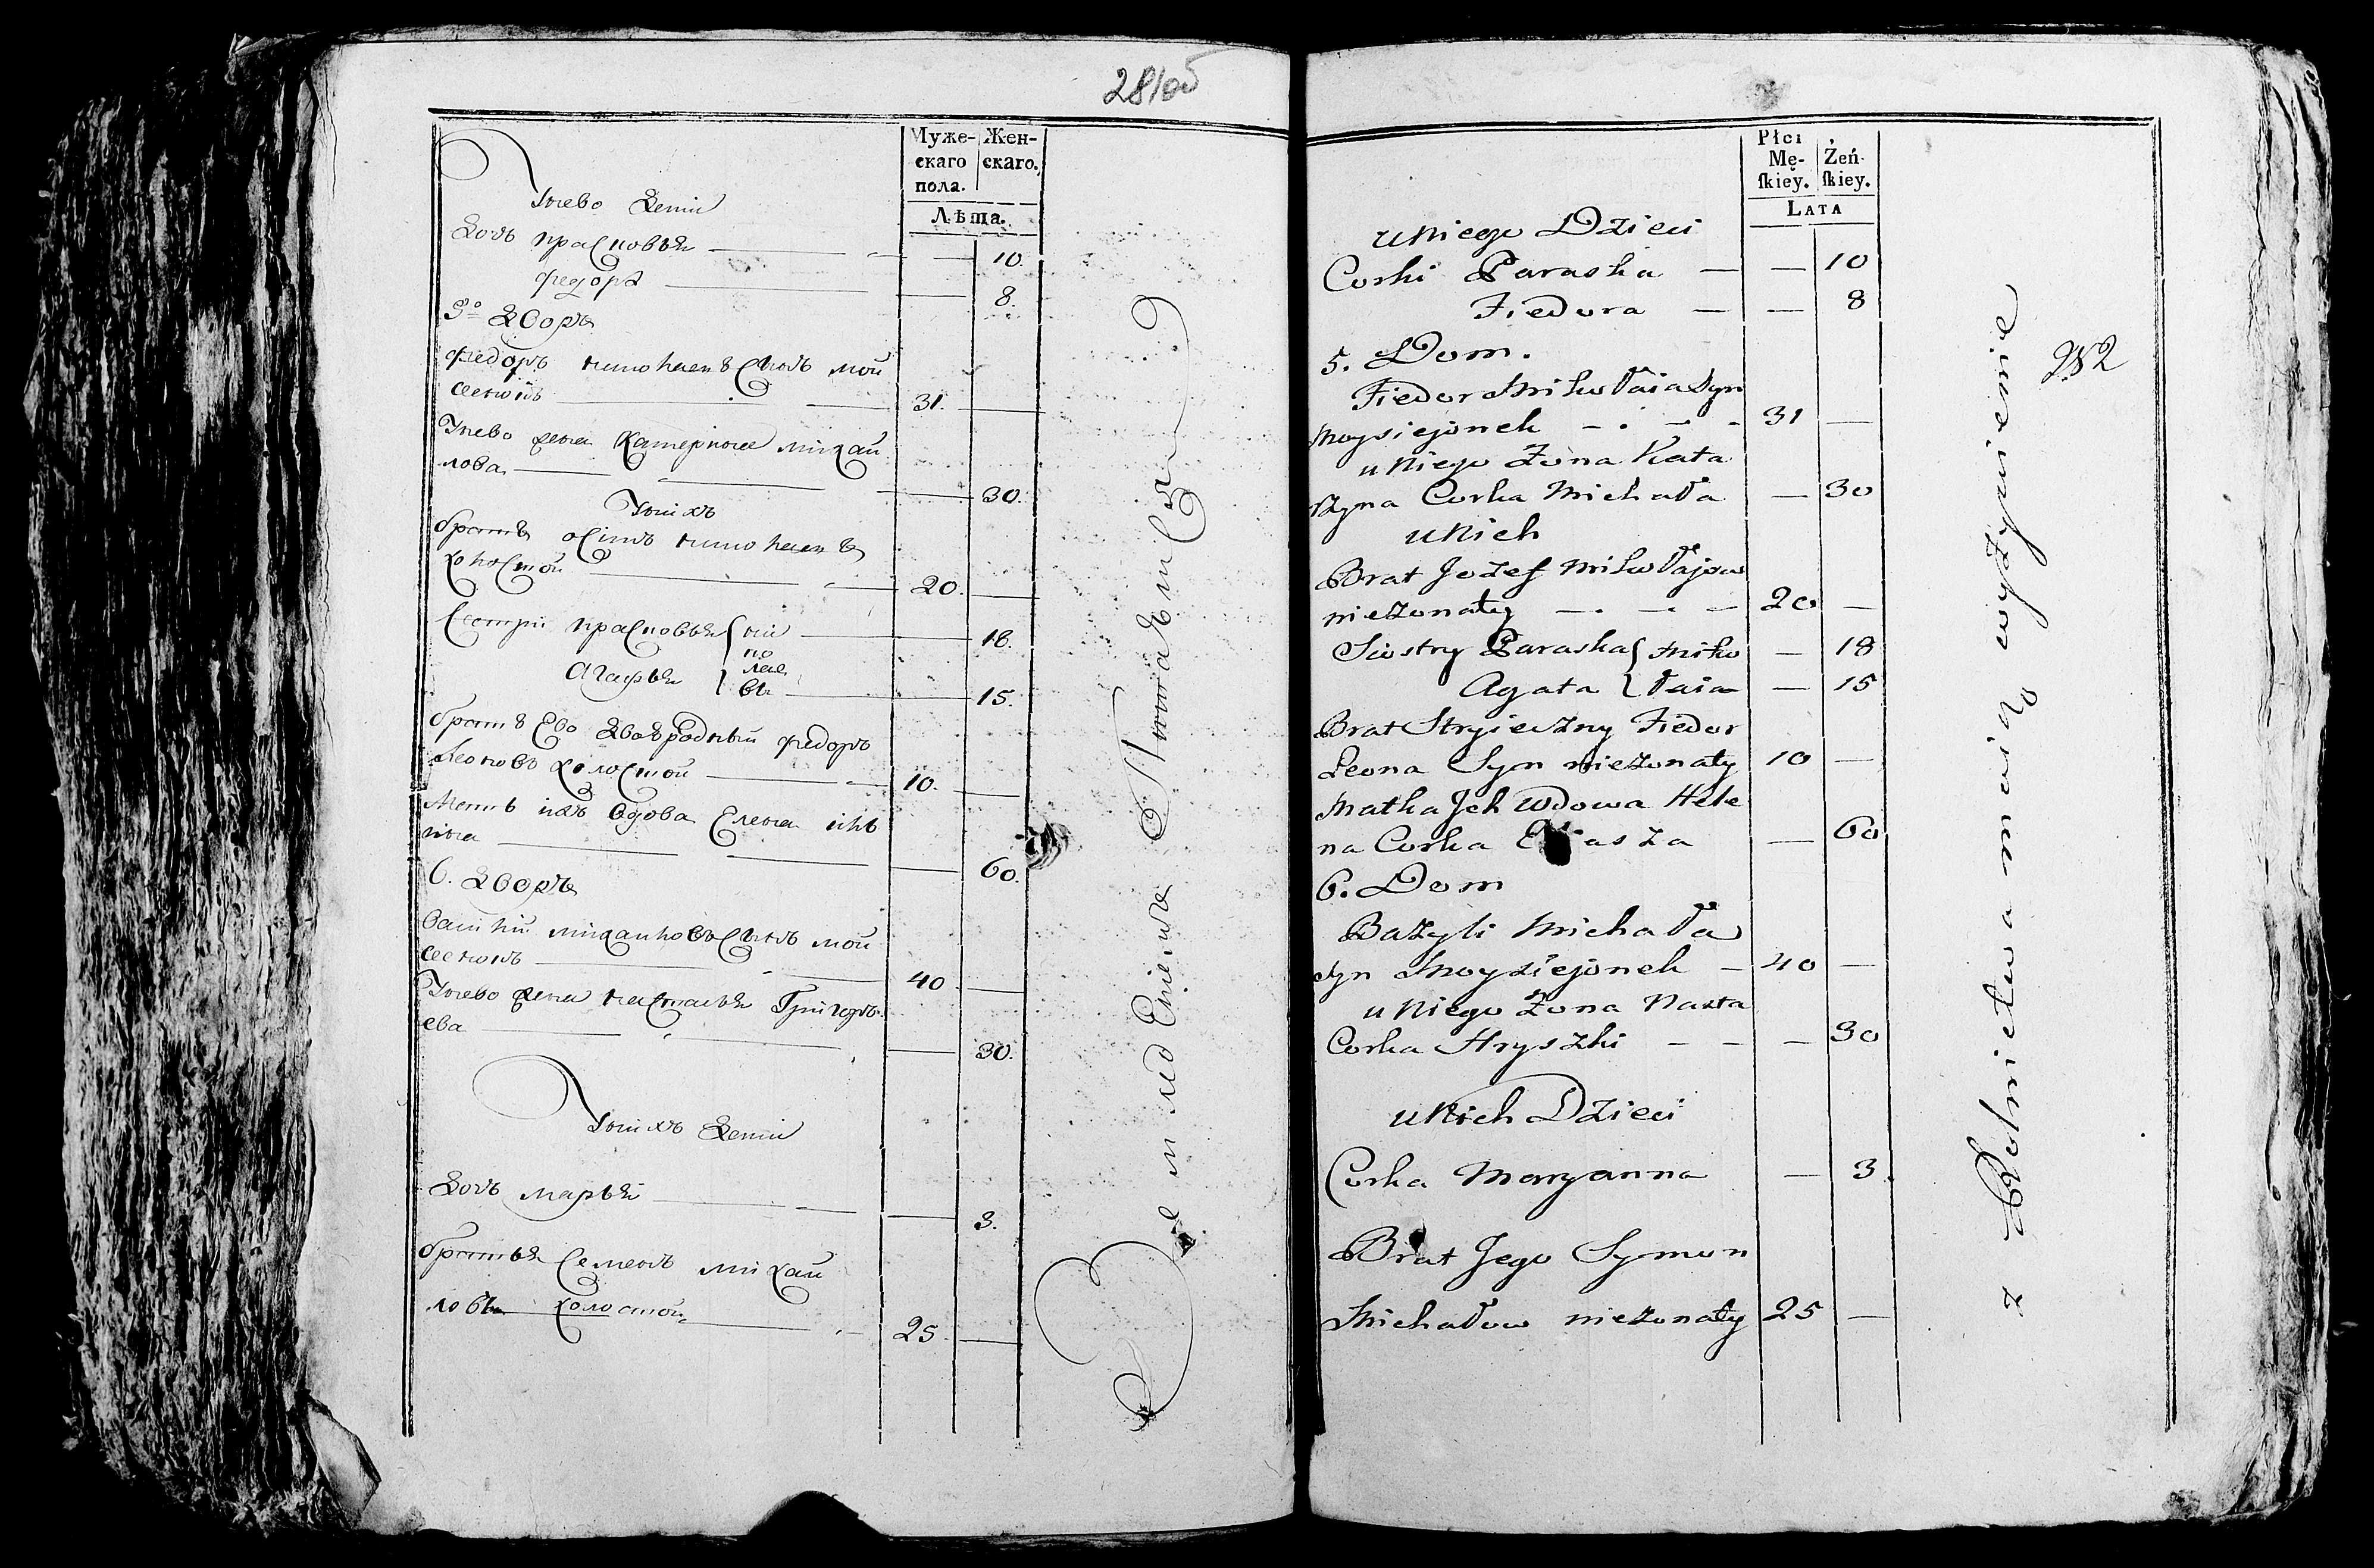 281об
Муже-
скаго
пола.
Жен-
скаго.
Лѣта.
Унево Дети
Дочь прасковья — — 10.
федора — — 8.
5о Дворъ
федоръ николаевъ сынъ мои
сеенокъ — 31. —
Унево жена Катерина михаи
лова — — 30.
Унихъ
братъ осипъ николаевъ
холостой — 20. —
Сестры прасковья { ни — 18.
ко
Агафья { лае
вы — 15.
братъ Ево двоюродный федоръ
Леоновъ холостой — 10. —
Мать ихъ вдова Елена иль
ина — — 60.
6. Дворъ
Василий михаиловъ сынъ мои
сеенокъ — 40. —
Унево жена настасья Григорь
ева — — 30.
Унихъ Дети
Дочь марья — — 3.
братья Семенъ михаи
ловъ холостой — 25. —
Płci
Mę-
ſkiey.
Żeń-
ſkiey.
LATA
282
u Niego Dzieci
Corki Paraska — — 10
Fiedora — — 8
5. Dom.
Fiedor Mikołaia Syn
Moysiejonek — 31 —
u Niego Żona Kata
rzyna Corka Michała — 30
u Nich
Brat Jozef Mikołajow
nieżonaty — 20 —
Siostry Paraska { Miko — 18
Agata { łaia — 15
Brat Stryieczny Fiedor
Leona Syn nieżonaty 10 —
Matka Jch Wdowa Hele
na Corka Eliasza — 60
6. Dom
Bazyli Michała
Syn Moysiejonek — 40 —
u Niego Żona Nasta
Corka Hryszki — — 30
u Nich Dzieci
Corka Maryanna — 3.
Brat Jego Symon
Michałow nieżonaty 25 —
z Rolnictwa maią wyżywienie